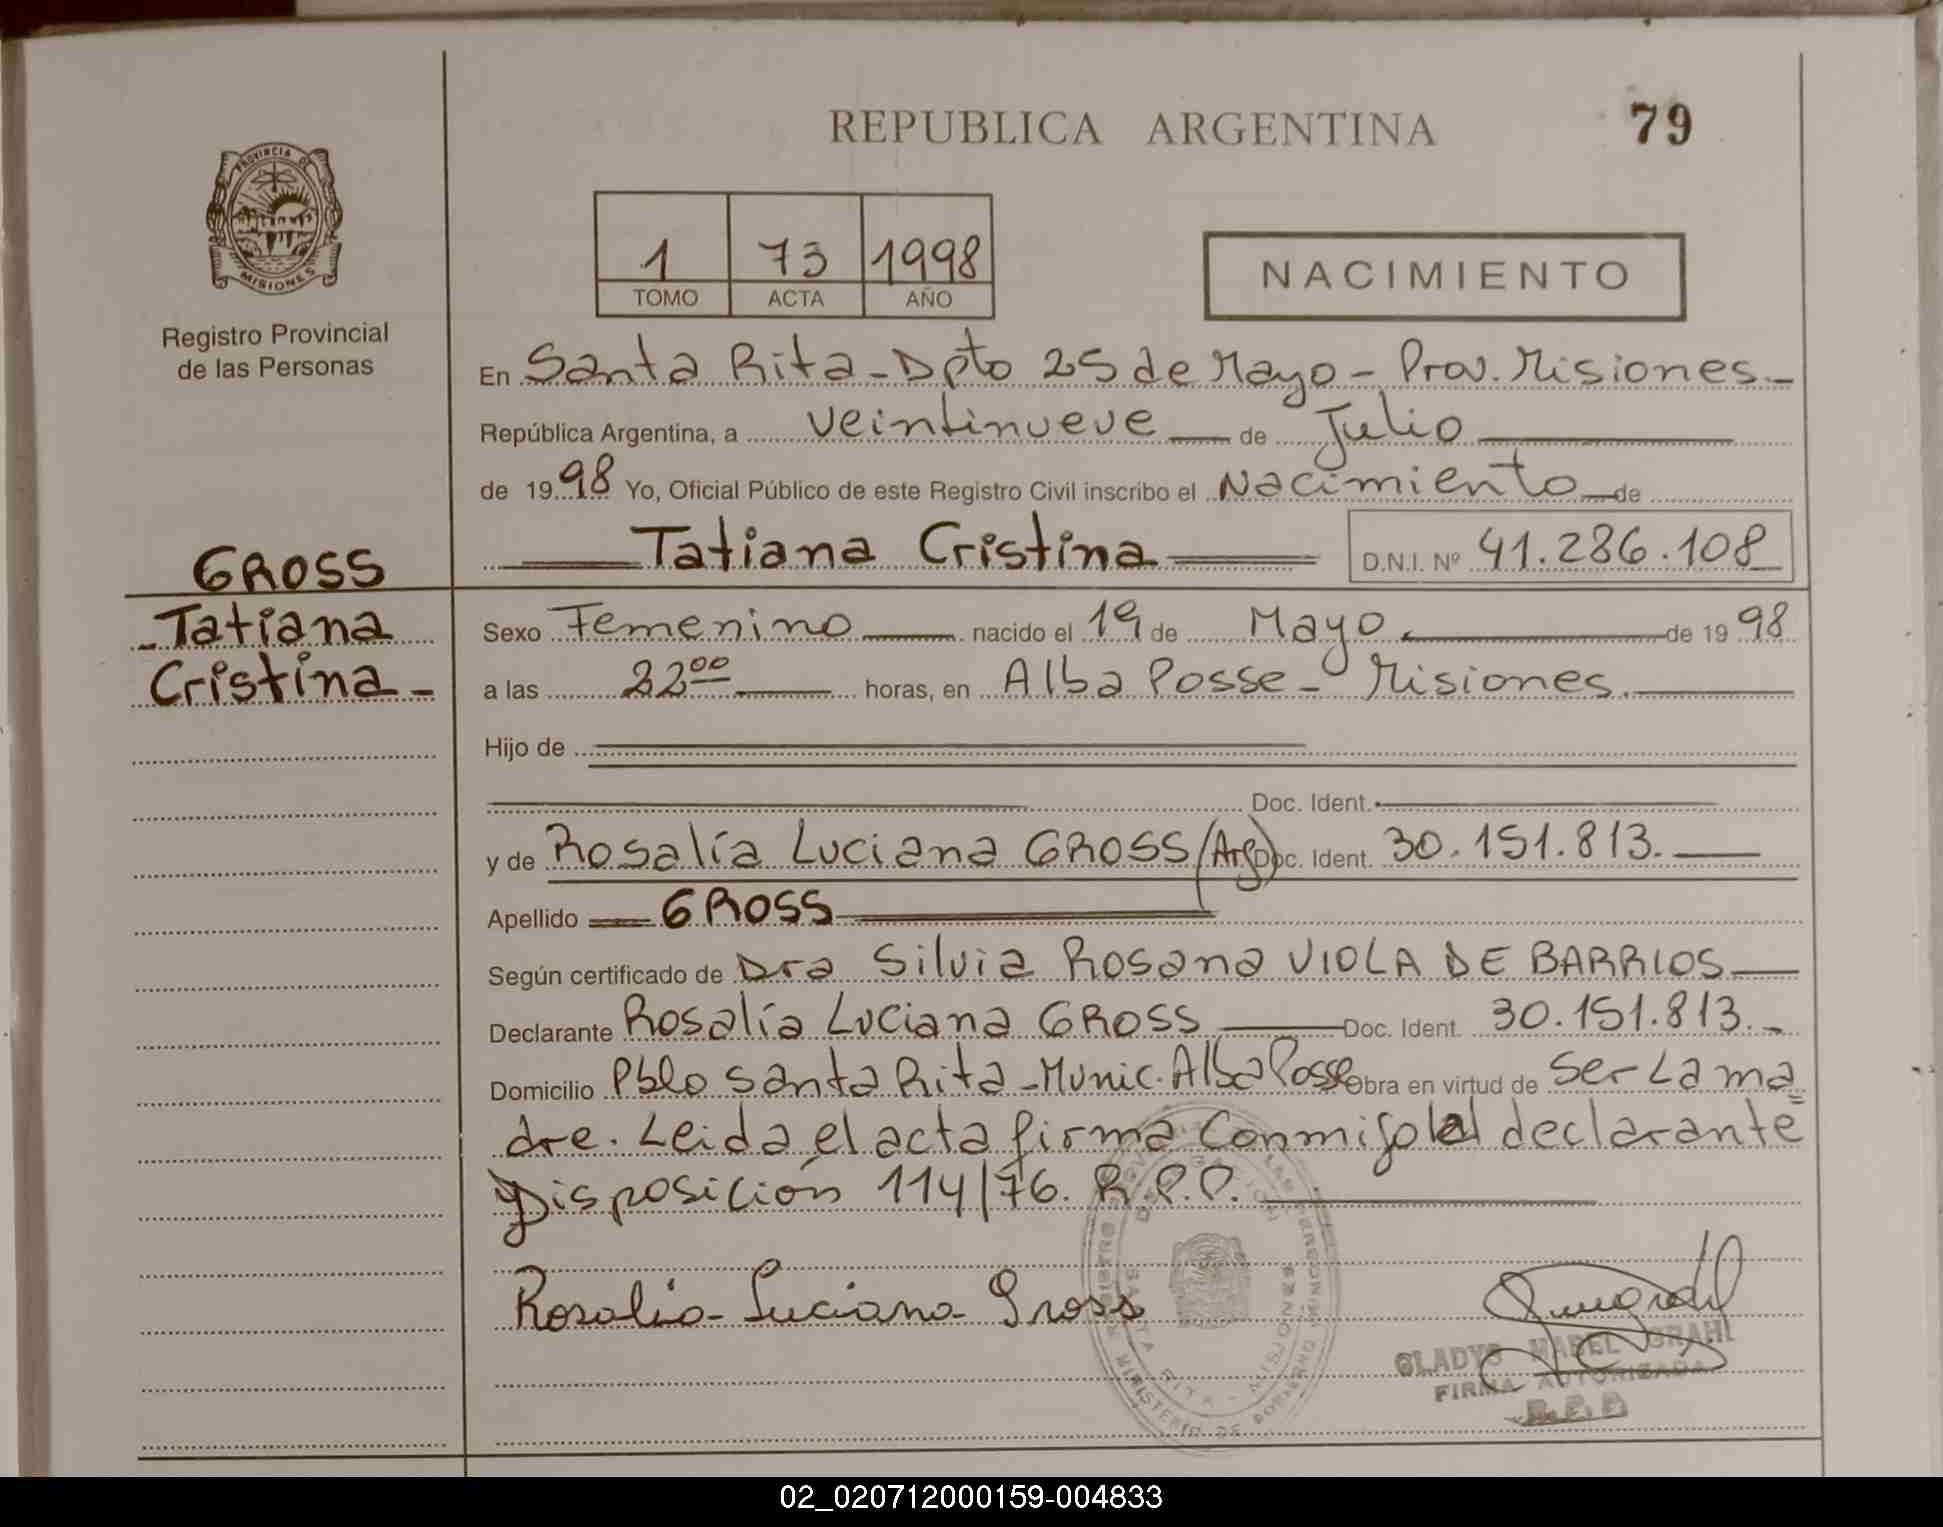 REPUBLICA ARGENTINA
79
PROVINCIA DE
MISIONES
Registro Provincial
de las Personas
1 73 1998
TOMO ACTA AÑO
NACIMIENTO
En Santa Rita - Dpto 25 de Mayo - Prov. Misiones.-
República Argentina, a veintinueve de Julio
de 1998 Yo, Oficial Público de este Registro Civil inscribo el Nacimiento de
Tatiana Cristina D.N.I. Nº 41.286.108
GROSS
Tatiana
Cristina -
Sexo Femenino nacido el 19 de Mayo de 1998
a las 22⁰⁰ horas, en Alba Posse - Misiones.
Hijo de
Doc. Ident.
y de Rosalía Luciana GROSS (Arg) Doc. Ident. 30.151.813.
Apellido GROSS
Según certificado de Dra Silvia Rosana VIOLA DE BARRIOS
Declarante Rosalía Luciana GROSS Doc. Ident. 30.151.813.-
Domicilio Pblo Santa Rita - Munic. Alba Posse Obra en virtud de Ser La ma=
dre. Leida el acta firma Conmigo la declarante
y Disposición 114/76. R.P.P.
Rosalia Luciana Gross
GLADYS MABEL GRAHL
FIRMA AUTORIZADA
R.P.P
SANTA RITA - MISIONES
MINISTERIO DE GOBIERNO
02_020712000159-004833